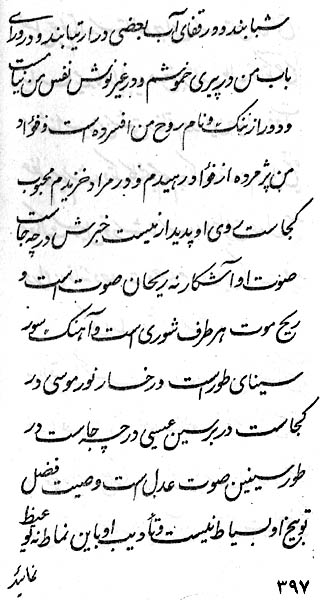 شتابند و در قفای آب بعضی در ارتیابند و در ورای
باب من در پیری خموشم و در غیر نوش نفس من نیات
و دور از ننگ و نام روح من افسرده است و فؤاد
من پژمرده از فؤاد رهیدم و در مراد خزیدم محبوب
کجاست روی او پدیدار نیست خبرش در چه جاست
صوت او آشکار نه ریحان صوت است و
ریح موت هر طرف شوری است و آهنگ سور
سینای طور است و رخسار نور موسی در
کجاست در بر سین عیسی در چه جاست در
طور سینین صوت عدل است وصیت فضل
توبیخ او بسیاط نیست و تأدیب او باین نماط نه تو
غیظ
نمائید
۳۹۷